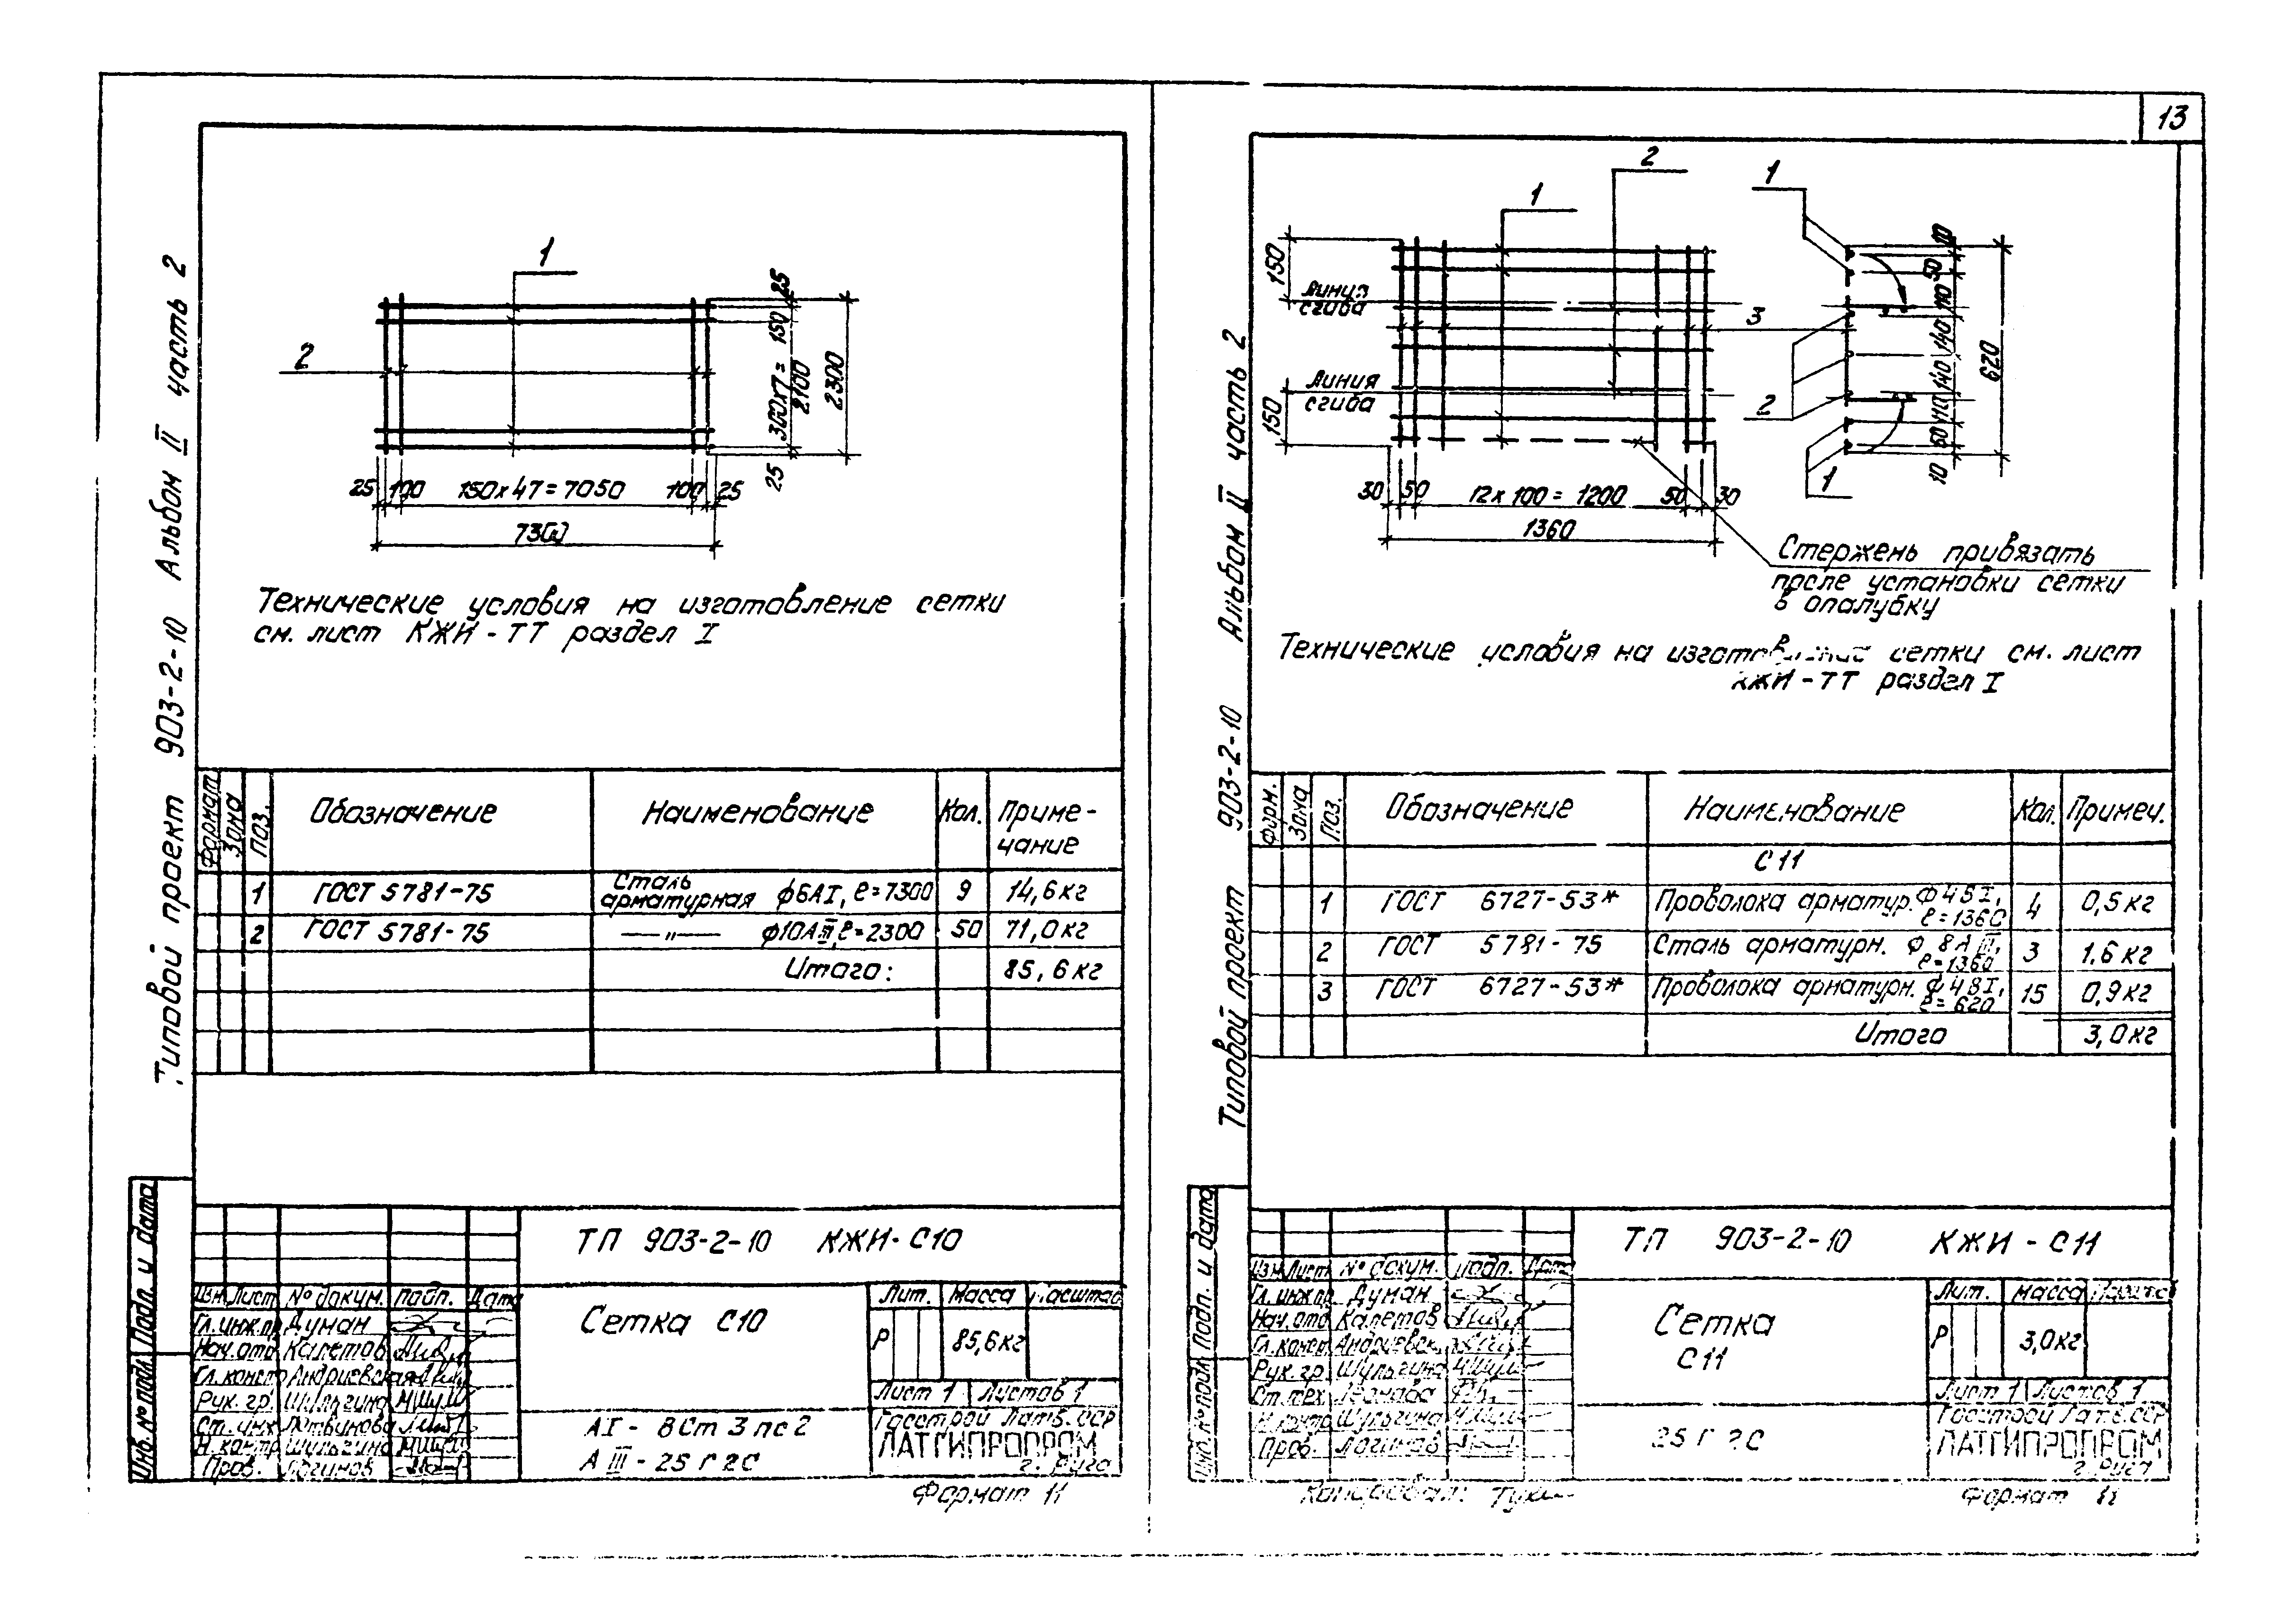 13
Типовой проект 903-2-10 Альбом II часть 2
1
2
25
300х7= 150
2100
2300
25
25 100 150х47=7050 100 25
7300
Технические условия на изготовление сетки
см. лист КЖИ-ТТ раздел I
Формат Зона Поз. Обозначение Наименование Кол. Приме-
чание
1 ГОСТ 5781-75 Сталь
арматурная ф6АI, ℓ=7300 9 14,6кг
2 ГОСТ 5781-75 —〃— ф10АIII, ℓ=2300 50 71,0кг
Итого: 85,6кг
Инв.№подл. Подп. и дата
ТП 903-2-10 КЖИ-С10
Изм. Лист №докум. Подп. Дата
Гл.инж.пр. Думан
Нач.отд Калетов
Гл.констр Андриевская
Рук.гр. Шульгина
Ст.инж Литвинова
Н.контр Шульгина
Пров. Логинов
Сетка С10
Лит. Масса Масштаб
Р 85,6кг
Лист 1 Листов 1
АI - ВСт 3 пс 2
АIII - 25 Г 2С
Госстрой Латв. ССР
ЛАТГИПРОПРОМ
г. Рига
Формат 11
Типовой проект 903-2-10 Альбом II часть 2
2
1
1
150
Линия
сгиба
3
Линия
сгиба
150
2
1
10
50
110
140
140
110
50
10
620
30 50 12х100=1200 50 30
1360
Стержень привязать
после установки сетки
в опалубку
Технические условия на изготовление сетки см. лист
КЖИ-ТТ раздел I
Форм. Зона Поз. Обозначение Наименование Кол. Примеч.
С11
1 ГОСТ 6727-53* Проволока арматур. ф4БI,
ℓ=1360 4 0,5кг
2 ГОСТ 5781-75 Сталь арматурн. ф8АIII,
ℓ=1360 3 1.6кг
3 ГОСТ 6727-53* Проволока арматурн. ф4ВI,
ℓ=620 15 0,9кг
Итого 3,0кг
Инв.№подл Подп. и дата
ТП 903-2-10 КЖИ-С11
Изм. Лист №докум. Подп. Дата
Гл.инж.пр Думан
Нач.отд Калетов
Гл.конст Андриевск.
Рук.гр. Шульгина
Ст.тех.
Н.контр Шульгина
Пров. Логинов
Сетка
С11
Лит. Масса
Р 3,0кг
Лист 1 Листов 1
25 Г 2С
Госстрой Латв. ССР
ЛАТГИПРОПРОМ
г. Рига
Копировал:
Формат 11